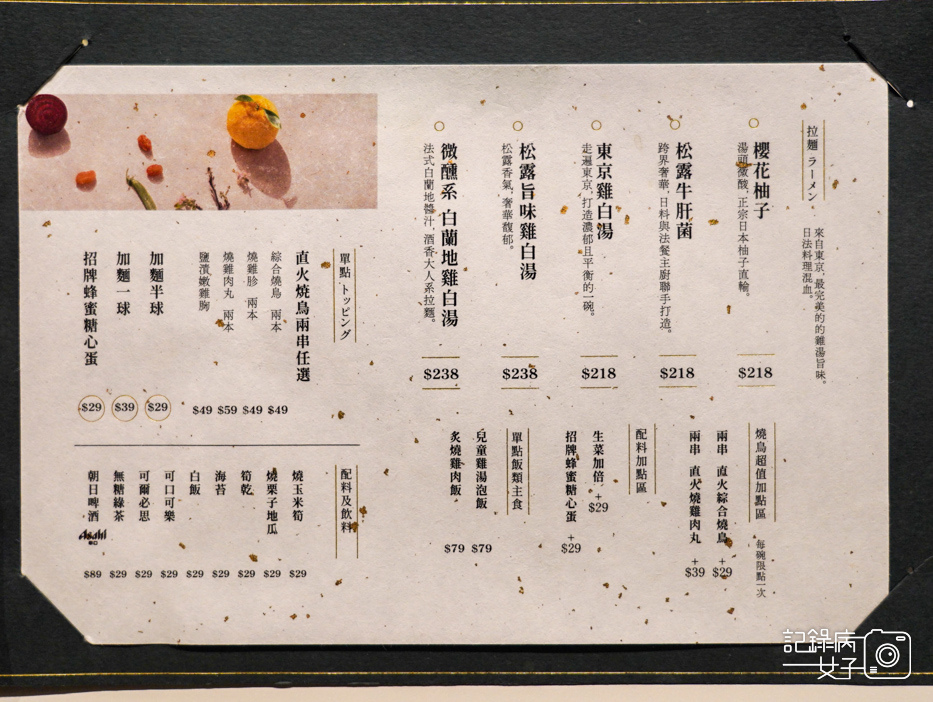 拉麵 ラーメン
來自東京,最完美的的雞湯旨味。
日法料理混血。
櫻花柚子
湯頭微酸,正宗日本柚子直輸。
$218
松露牛肝菌
跨界奢華,日料與法餐主廚聯手打造。
$218
東京雞白湯
走遍東京,打造濃郁且平衡的一碗。
$218
松露旨味雞白湯
松露香氣,奢華馥郁。
$238
微醺系 白蘭地雞白湯
法式白蘭地醬汁,酒香大人系拉麵。
$238
燒鳥超值加點區 每碗限點一次
兩串 直火綜合燒鳥 +$29
兩串 直火燒雞肉丸 +$39
配料加點區
生菜加倍 +$29
招牌蜂蜜糖心蛋 +$29
單點飯類主食
兒童雞湯泡飯 $79
炙燒雞肉飯 $79
單點 トッピング
直火燒鳥兩串任選
綜合燒鳥 兩本 $49
燒雞胗 兩本 $49
燒雞肉丸 兩本 $59
鹽漬嫩雞胸 $49
加麵半球 $29
加麵一球 $39
招牌蜂蜜糖心蛋 $29
配料及飲料
燒玉米筍 $29
燒栗子地瓜 $29
筍乾 $29
海苔 $29
白飯 $29
可口可樂 $29
可爾必思 $29
無糖綠茶 $29
朝日啤酒 Asahi $89
記錄病
女子